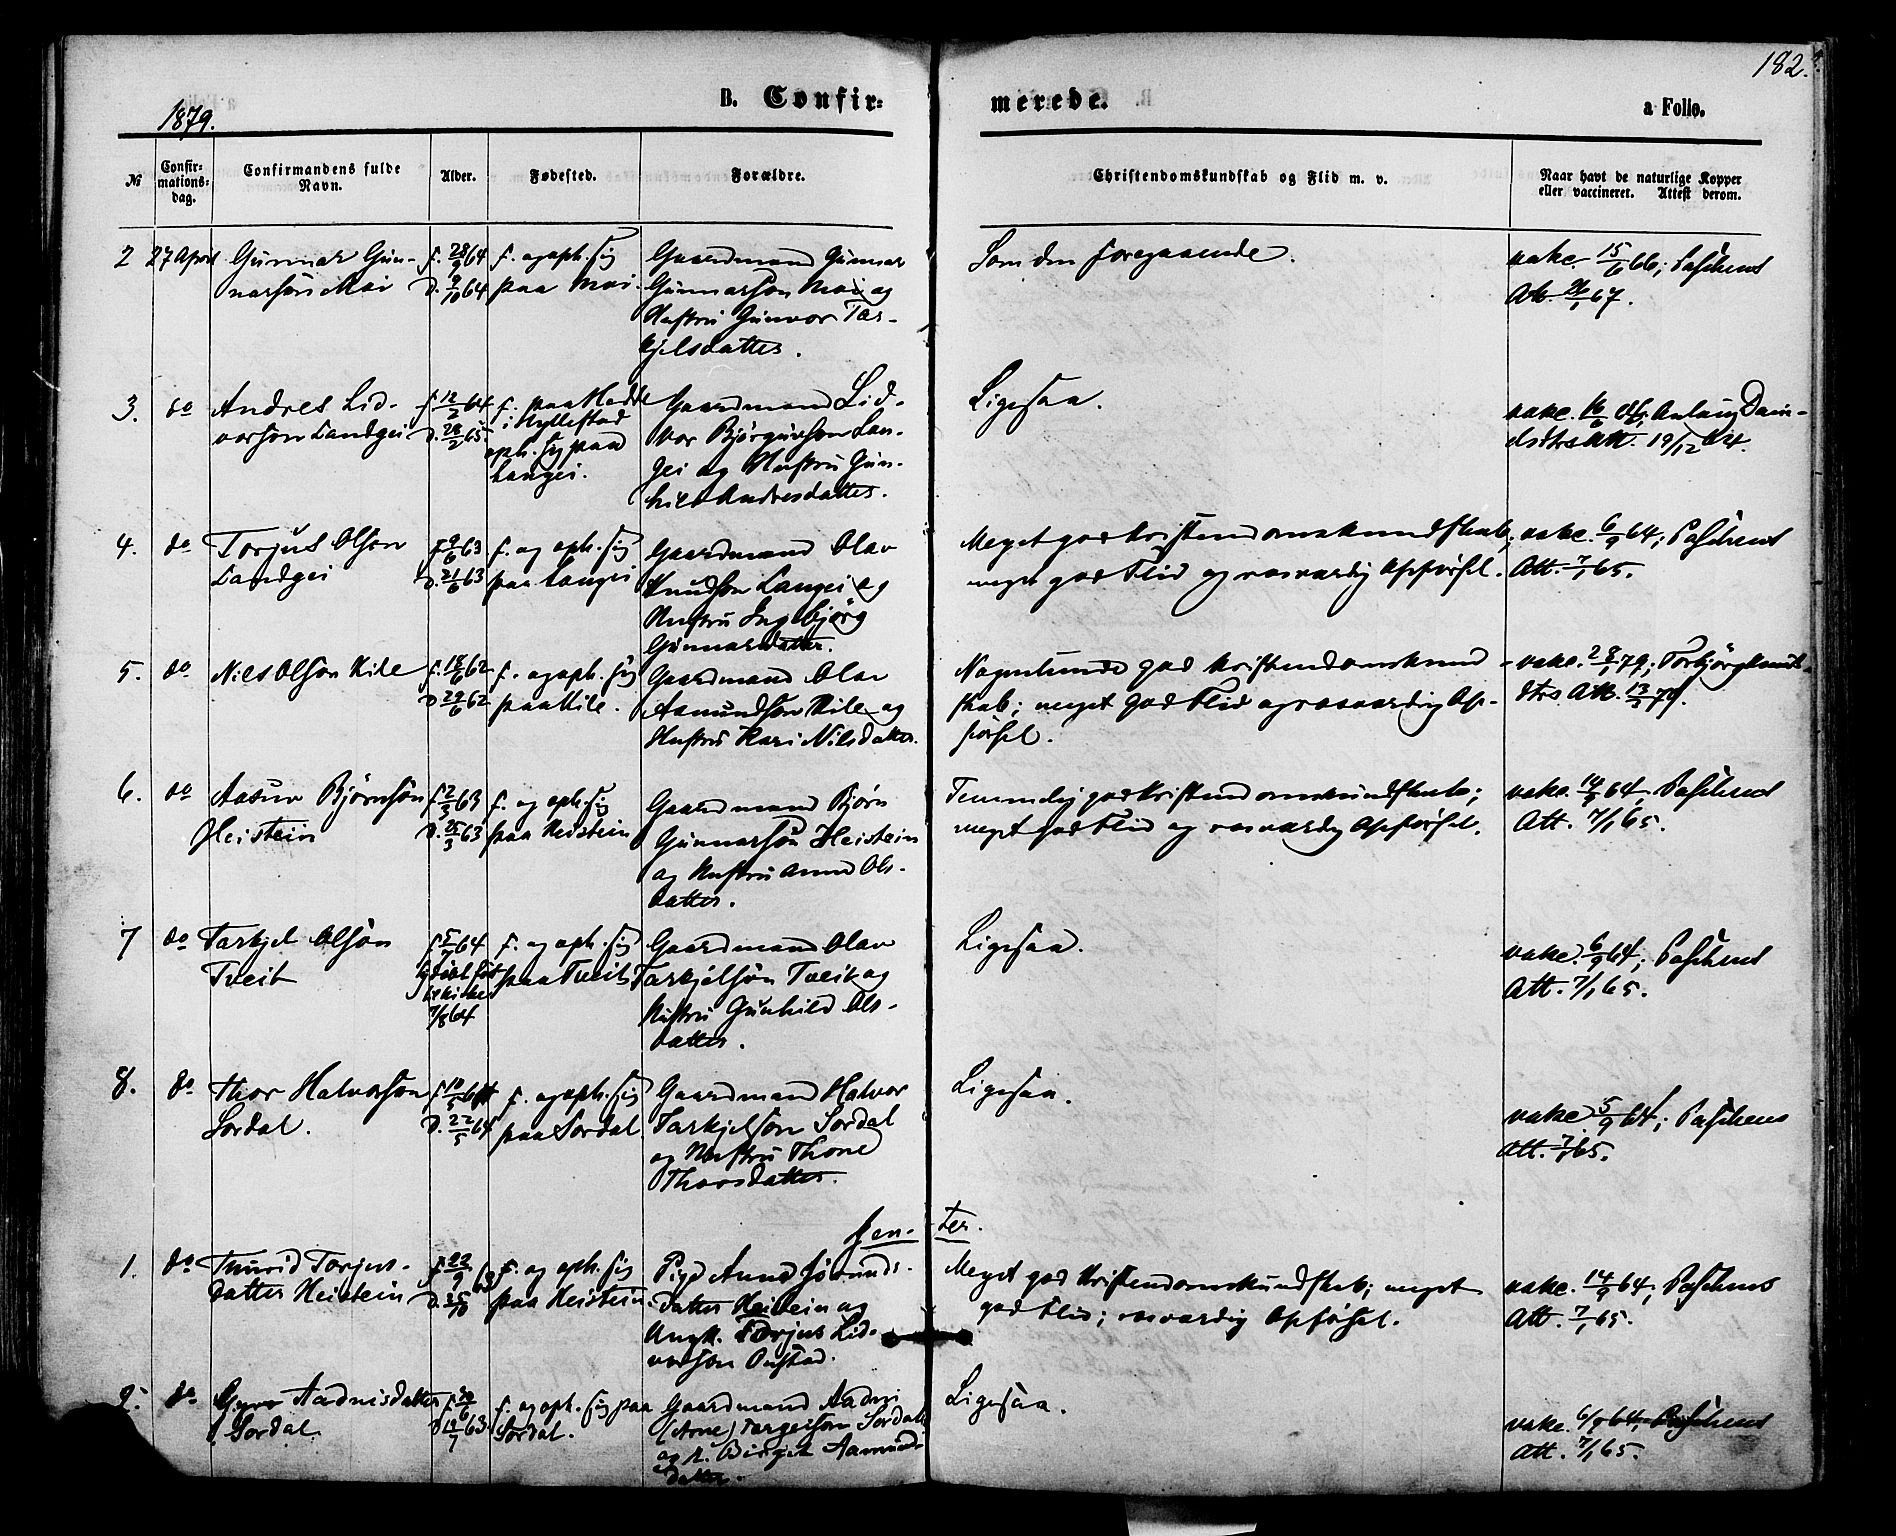 182.
1879.
B. Confir-
merede.
a Folio.
№
Confir-
mations-
dag.
Confirmandens fulde
Navn.
Alder.
Fødested.
Forældre.
Christendomskundskab og Flid m. v.
Naar havt de naturlige Kopper
eller vaccineret. Attest derom.
2 27 April Gunnar Gun-
narson Moi
f. 28/9 64
d. 9/10 64
f. og oph. sig
paa Moi.
Gaardmand Gunnar
Gunnarson Moi og
Hustru Gunvor Tar-
kjelsdatter.
Som den foregaaende.
vakc. 15/6 66; Paschens
Att. 26/1 67.
3. do Andres Lid-
vorson Landgei
f. 12/2 64
d. 28/2 65
f. paa
i Hyllestad
oph. sig paa
Langei.
Gaardmand Lid-
vor Bjørgunson Lan-
gei og Hustru Gun-
hild Andresdatter.
Ligesaa.
vakc.
Att. 19/12 64.
4. do Torjus Olson
Landgei
f. 9/6 63
d. 21/6 63
f. og oph. sig
paa Langei
Gaardmand Olav
Knudson Langei og
Hustru Ingebjörg
Gunnarsdatter.
Meget god Kristendomskundskab;
meget god Flid og rosværdig Opførsel.
vakc. 6/9 64; Paschens
Att. 7/1 65.
5. do Nils Olson Kile
f. 18/6 62
d. 29/6 62
f. og oph. sig
paa Kile.
Gaardmand Olav
Asmundson Kile og
Hustru Kari Nilsdatter.
Nogenlunde god Kristendomskund-
skab; meget god Flid og rosværdig Op-
førsel.
vakc. 28/1 79; Torbjörg Knuts-
dtrs Att.
6. do Aasuv Björnson
Heistein
f. 2/3 63
d. 25/3 63
f. og oph. sig
paa Heistein
Gaardmand Bjørn
Gunnarson Heistein
og Hustru Anne Ols-
datter.
Temmelig god Kristendomskundskab;
meget god Flid og rosværdig Opførsel.
vakc. 14/9 64; Paschens
Att. 7/1 65.
7 do Tarkjel Olson
Tveit
7/8 64
f. og oph. sig
paa Tveit
Gaardmand Olav
Tarkjelson Tveit og
Hustru Gunhild Ols-
datter.
Ligesaa.
vakc. 6/9 64; Paschens
Att. 7/1 65.
8. do Thor Halvorson
Sordal.
f. 10/5 64
d. 22/5 64
f. og oph. sig
paa Sordal.
Gaardmand Halvor
Tarkjelson Sordal
og Hustru Thone
Thorsdatter.
Ligesaa.
vakc. 5/9 64; Paschens
Att. 7/1 65.
Jen-ter.
1. do Thurid Torjus-
datter Heistein
f. 22/9 63
d. 25/10
f. og oph. sig
paa Heistein
Pige Anne Jörunds-
datter Heistein og
Ungk. Torjus Lid-
vorson Onstad.
Meget god Kristendomskundskab; meget
god Flid; rosværdig Opførsel.
vakc. 14/9 64; Paschens
Att. 7/1 65.
2. do Gyro Aadnisdatter
Sordal
d. 19/7 63
f. og oph. sig paa
Sordal.
Gaardmand Aadni
(Arne) Targerson Sordal
og H. Birgit Aamunds-
datter.
Ligesaa.
vakc. 6/9 64, Paschens
Att. 7/1 65.